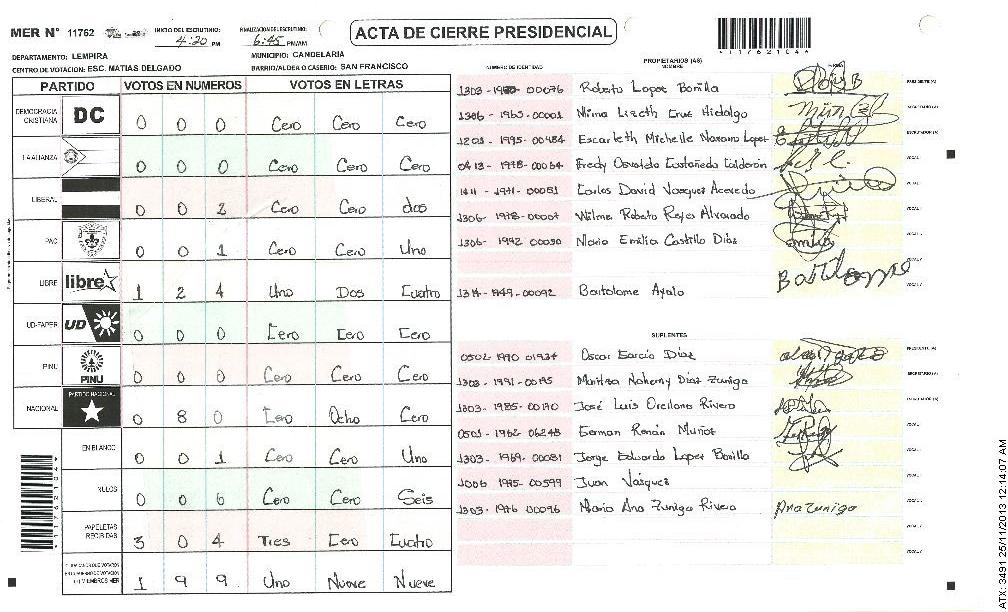 MER Nº 11762
INICIO DEL ESCRUTINIO: 4:20 PM
FINALIZACION DEL ESCRUTINIO: 6:45 PM/AM
ACTA DE CIERRE PRESIDENCIAL
DEPARTAMENTO: LEMPIRA
MUNICIPIO: CANDELARIA
CENTRO DE VOTACION: ESC. MATIAS DELGADO
BARRIO/ALDEA O CASERIO: SAN FRANCISCO
PARTIDO VOTOS EN NUMEROS VOTOS EN LETRAS
DEMOCRACIA CRISTIANA DC 0 0 0 Cero Cero Cero
LA ALIANZA 0 0 0 Cero Cero Cero
LIBERAL 0 0 2 Cero Cero dos
PAC 0 0 1 Cero Cero Uno
LIBRE libre 1 2 4 Uno Dos Cuatro
UD-FAPER UD 0 0 0 Cero Cero Cero
PINU PINU 0 0 0 Cero Cero Cero
NACIONAL PARTIDO NACIONAL 0 8 0 Cero Ocho Cero
EN BLANCO 0 0 1 Cero Cero Uno
NULOS 0 0 6 Cero Cero Seis
PAPELETAS RECIBIDAS 3 0 4 Tres Cero Cuatro
MIEMBROS MER 1 9 9 Uno Nueve Nueve
PROPIETARIOS (AS)
NUMERO DE IDENTIDAD NOMBRE
00076 Roberto Lopez Bonilla
1306 - 1963 - 00001 Mirna Lizeth Cruz Hidalgo
1201 - 1995 - 00484 Escarleth Michelle Navarro Lopez
0413 - 1978 - 00064 Fredy Osvaldo Castañeda Calderón
1411 - 1971 - 00051 Carlos David Vasquez Acevedo
1306 - 1978 - 00007 Wilmer Roberto Reyes Alvarado
1306 - 1992 00050 Maria Emilia Castillo Díaz
00092 Bartolome Ayala
SUPLENTES
0502 1990 01934 Oscar García Díaz
1303 - 1991 - 00195 Maritza Nohemy Diaz Zuniga
1303 - 1985 - 00170 José Luis Orellana Rivera
0501 - 1962 - 06248 German Renán Muñoz
1303 - 1969 - 00081 Jorge Eduardo Lopez Bonilla
1006 1975 - 00599 Juan Vásquez
1303 - 1976 00096 Maria Ana Zuniga Rivera Ana Zuniga
ATX: 3491 25/11/2013 12:14:07 AM